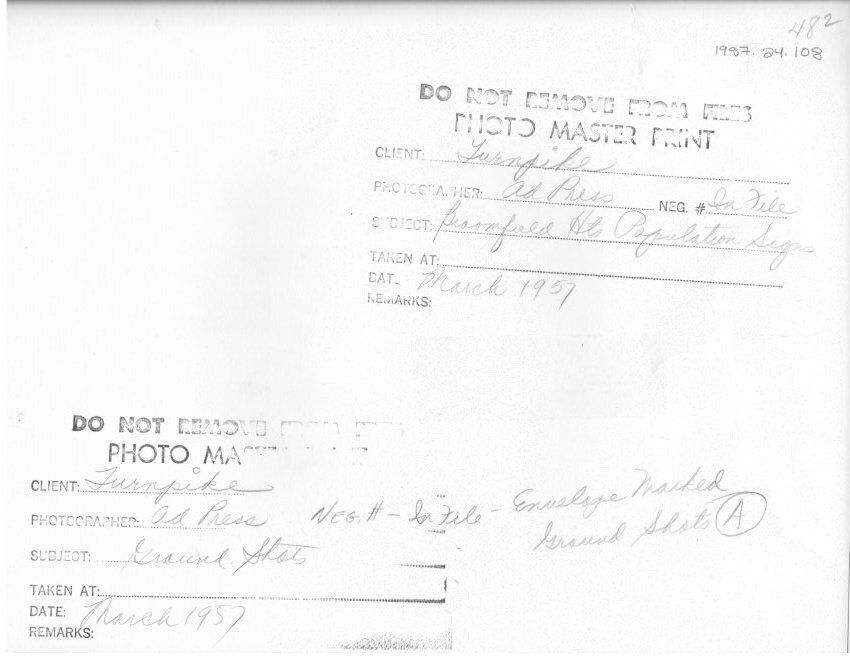 482
1987.24.108
DO NOT REMOVE FROM FILES
PHOTO MASTER PRINT
CLIENT: Turnpike
PHOTOGRAPHER: Ad Press NEG. # In File
SUBJECT: Broomfield Hts Population Signs
TAKEN AT:
DATE March 1957
REMARKS:
DO NOT REMOVE FROM FILES
PHOTO MASTER PRINT
CLIENT: Turnpike
PHOTOGRAPHER: Ad Press NEG. # - In File - Envelope Marked
Ground Shots A
SUBJECT: Ground Shots
TAKEN AT:
DATE: March 1957
REMARKS: